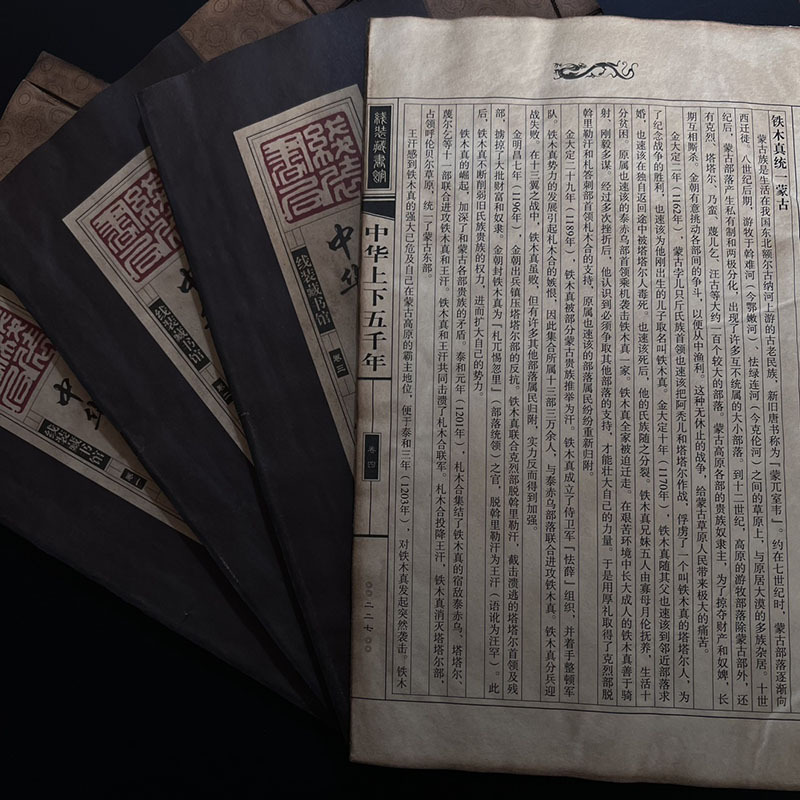 铁木真统一蒙古
蒙古族是生活在我国东北额尔古纳河上游的古老民族，新旧唐书称为『蒙兀室韦』。约在七世纪时，蒙古部落逐渐向
西迁徙，八世纪后期，游牧于斡难河（今鄂嫩河）、怯绿连河（小克伦河）之间的草原上，与原居大漠的多族杂居。十世
纪后，蒙古部落产生私有制和两极分化，出现了许多互不统属的大小部落，到十二世纪，高原的游牧部落除蒙古部外，还
有克烈、塔塔尔、乃蛮、蔑儿乞、汪古等大约一百个较大的部落。蒙古高原各部的贵族奴隶主，为了掠夺财产和奴婢，长
期互相厮杀。金朝有意挑动各部间的争斗，以便从中渔利。这种无休止的战争，给蒙古草原人民带来极大的痛苦。
金大定二年（1162年），蒙古孛儿只斤氏族首领也速该把阿秃儿和塔塔尔作战，俘虏了一个叫铁木真的塔塔尔人，为
了纪念战争的胜利，也速该为他刚出生的儿子取名叫铁木真。金大定十年（1170年），铁木真随其父也速该到邻近部落求
婚，也速该在独自返回途中被塔塔尔人毒死。也速该死后，他的氏族随之分裂。铁木真兄妹五人由寡母月伦抚养，生活十
分贫困。原属也速该的泰赤乌部首领乘机袭击铁木真一家。铁木真全家被迫迁走。在艰苦环境中长大成人的铁木真善于骑
射，刚毅多谋，经过多次挫折后，他认识到必须争取其他部落的支持，才能壮大自己的力量。于是用厚礼取得了克烈部脱
斡里勒汗和札答剌部首领札木合的支持，原属也速该的部落属民纷纷重新归附。
金大定二十九年（1189年），铁木真被部分蒙古贵族推举为汗。铁木真成立了侍卫军『怯薛』组织，并着手整顿军
队，铁木真势力的发展引起札木合的嫉恨，因此集合所属十三部三万余人，与泰赤乌部落联合进攻铁木真。铁木真分兵迎
战失败，在十三翼之战中，铁木真虽败，但有许多其他部落属民归附，实力反而得到加强。
金明昌七年（1196年），金朝出兵镇压塔塔尔的反抗。铁木真联合克烈部脱斡里勒汗，截击溃逃的塔塔尔首领及残
部，掳掠了大批财富和奴隶。金朝封铁木真为『札兀惕忽里』（部落统领）之官，脱斡里勒汗为王汗（语讹为汪罕）。此
后，铁木真不断削弱旧氏族贵族的权力，进而扩大自己的势力。
铁木真的崛起，加深了和蒙古各部贵族的矛盾。泰和元年（1201年），札木合集结了铁木真的宿敌泰赤乌、塔塔尔、
蔑尔乞等十一部联合进攻铁木真和王汗。铁木真和王汗共同击溃了札木合联军。札木合投降王汗，铁木真消灭塔塔尔部，
占领呼伦贝尔草原，统一了蒙古东部。
王汗感到铁木真的强大已危及自己在蒙古高原的霸主地位，便于泰和三年（1203年），对铁木真发起突然袭击。铁木
线装藏书馆
中华上下五千年
卷四
〇〇二二七〇〇
线装书局
中华
线装藏书馆
卷三
线装书局
中华
线装藏书馆
卷二
线装书局
中华
线装藏书馆
卷一